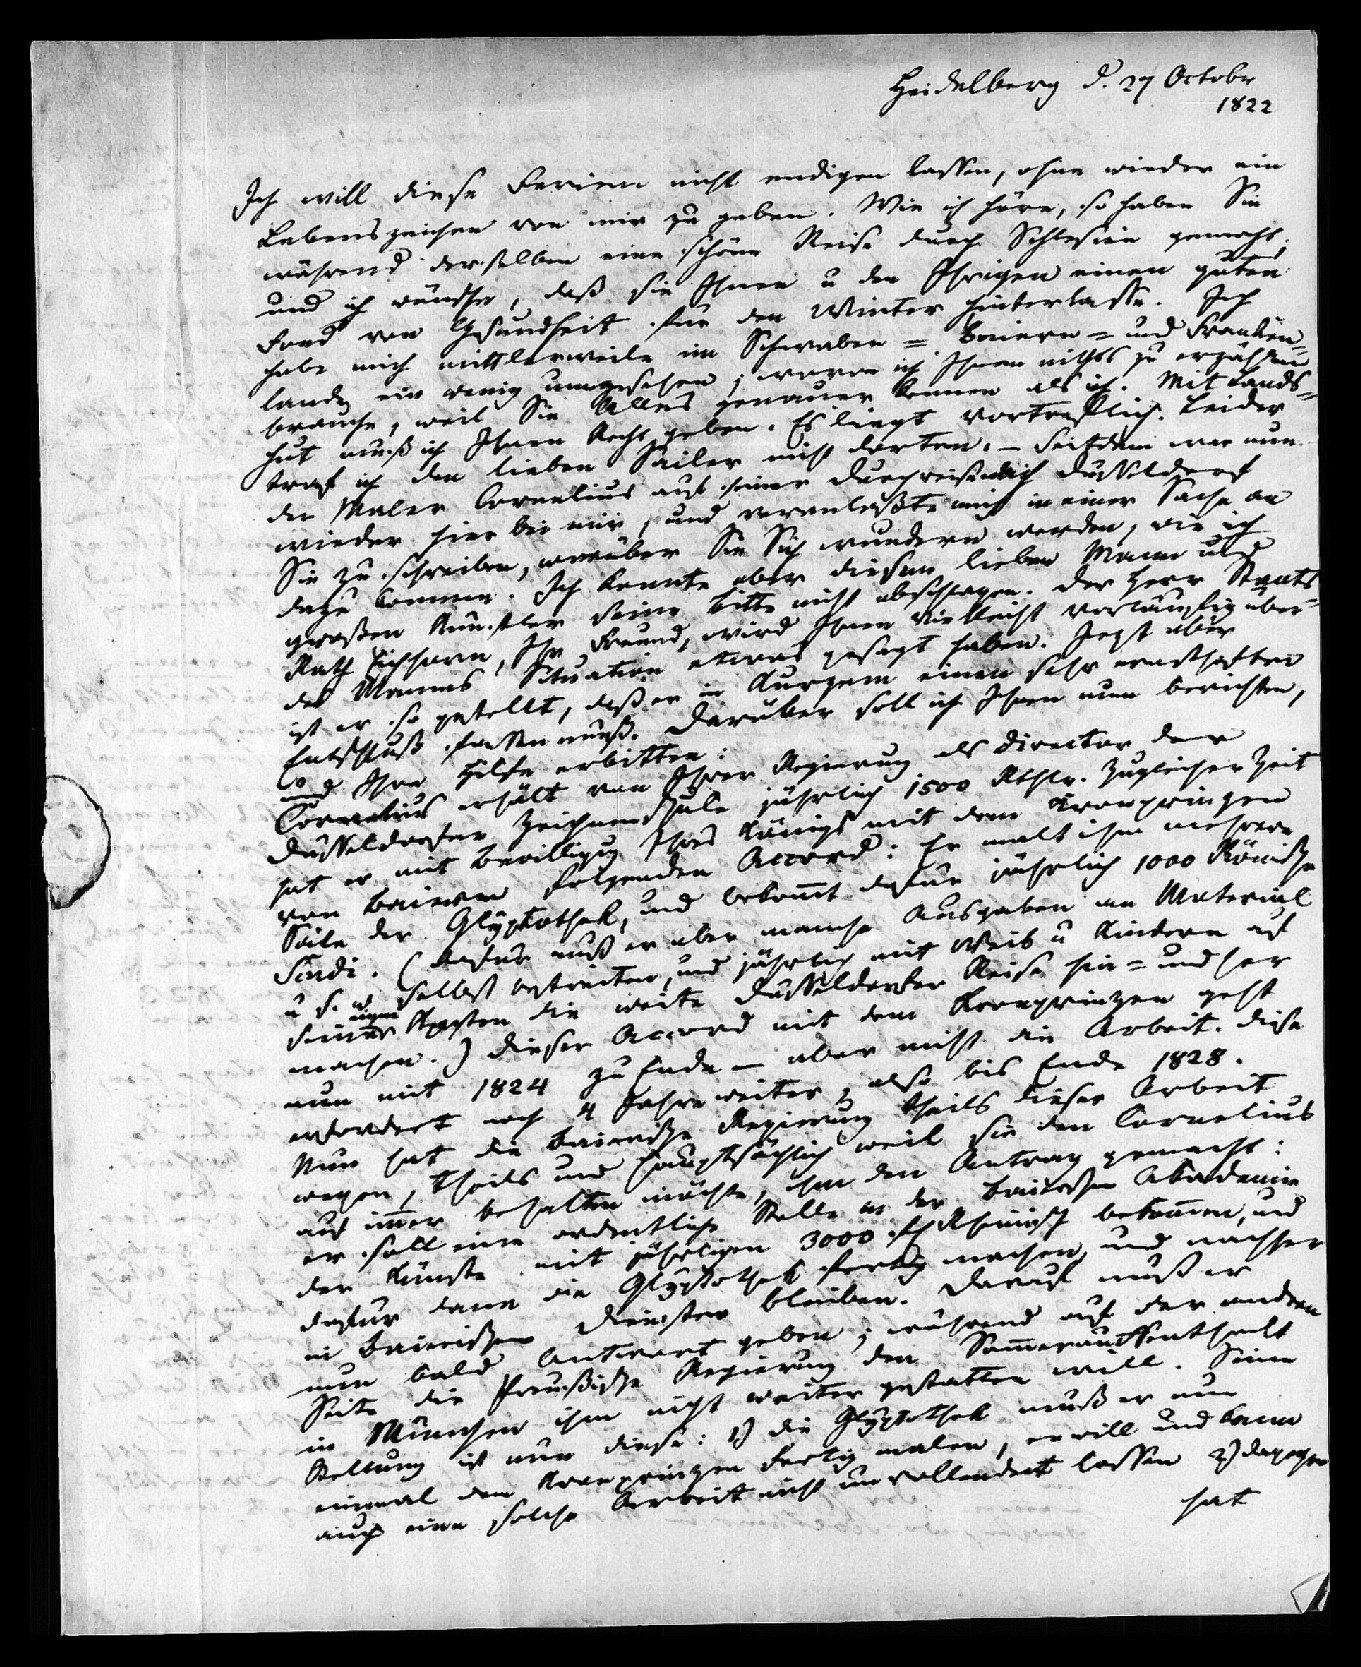 Heidelberg d. 27 Octobr
1822
Ich will diese Ferien nicht endigen lassen, ohne wieder ein
Lebenszeichen von mir zu geben. Wie ich höre, so haben Sie
während derselben eine schöne Reise durch Schlesien gemacht,
und ich wünsche, daß sie Ihnen u den Ihrigen einen guten
Fond von Gesundheit für den Winter hinterlasse. Ich
habe mich mittlerweile im Schwaben= Baiern= und Franken=
lande ein wenig umgesehen, wovon ich Ihnen nichts zu erzählen
brauche, weil Sie Alles genauer kennen als ich. Mit Lands=
hut muß ich Ihnen Recht geben. Es liegt vortrefflich. Leider
traf ich den lieben Sailer nicht dorten. – Seitdem war nun
der Maler Cornelius auf seiner Durchreise nach Düsseldorf
wieder hier bei mir, und veranlaßte mich in einer Sache an
Sie zu schreiben, worüber Sie Sich wundern werden, wie ich
dazu komme. Ich konnte aber diesem lieben Mann und
großen Künstler seine Bitte nicht abschlagen. Der Herr Staats=
Rath Eichhorn, Ihr Freund, wird Ihnen vielleicht vorläufig über
des Mannes Situation etwas gesagt haben. Jezt aber
ist er so gestellt, daß er in Kurzem einen sehr ernsthaften
Entschluß fassen muß. Darüber soll ich Ihnen nun berichten,
und Ihre Hilfe erbitten:
Cornelius erhält von Ihrer Regierung als Director der
Düsseldorfer Zeichenschule jährlich 1500 Rthlr. Zugleicher Zeit
hat er mit Bewilligung Ihres Königs mit dem Kronprinzen
von Baiern folgenden Accord: Er malt ihm mehrere
Säle der Glyptothek, und bekomt dafür jährlich 1000 Römische
Scudi. (dafür muß er aber manche Ausgaben an Material
u s. w. selbst bestreiten, und jährlich mit Weib u Kindern auf
seine eigne Kosten die weite Düsseldorfer Reise hin= und her
machen.) Dieser Accord mit dem Kronprinzen geht
nun mit 1824 zu Ende – aber nicht die Arbeit. Diese
erfordert noch 4 Jahre weiter, also bis Ende 1828.
Nun hat die Bairische Regierung theils dieser Arbeit
wegen, theils und hauptsächlich weil sie den Cornelius
auf imer behalten möchte, ihm den Antrag gemacht:
er soll eine ordentliche Stelle an der Bairischen Akademie
der Künste mit jährlichen 3000 fl Rheinisch bekomen, und
dafür dann die Glyptothek fertig machen, und nachher
in Bairischen Diensten bleiben. Darauf muß er
nun bald Antwort geben; während auf der andern
Seite die Preußische Regierung den Somerauffenthalt
in München ihm nicht weiter gestatten will. Seine
Stellung ist nun diese: 1) die Glyptothek muß er nun
einmal dem Kronprinzen fertig malen, er will und kann
auch eine solche Arbeit nicht unvollendet lassen 2) dagegen
hat